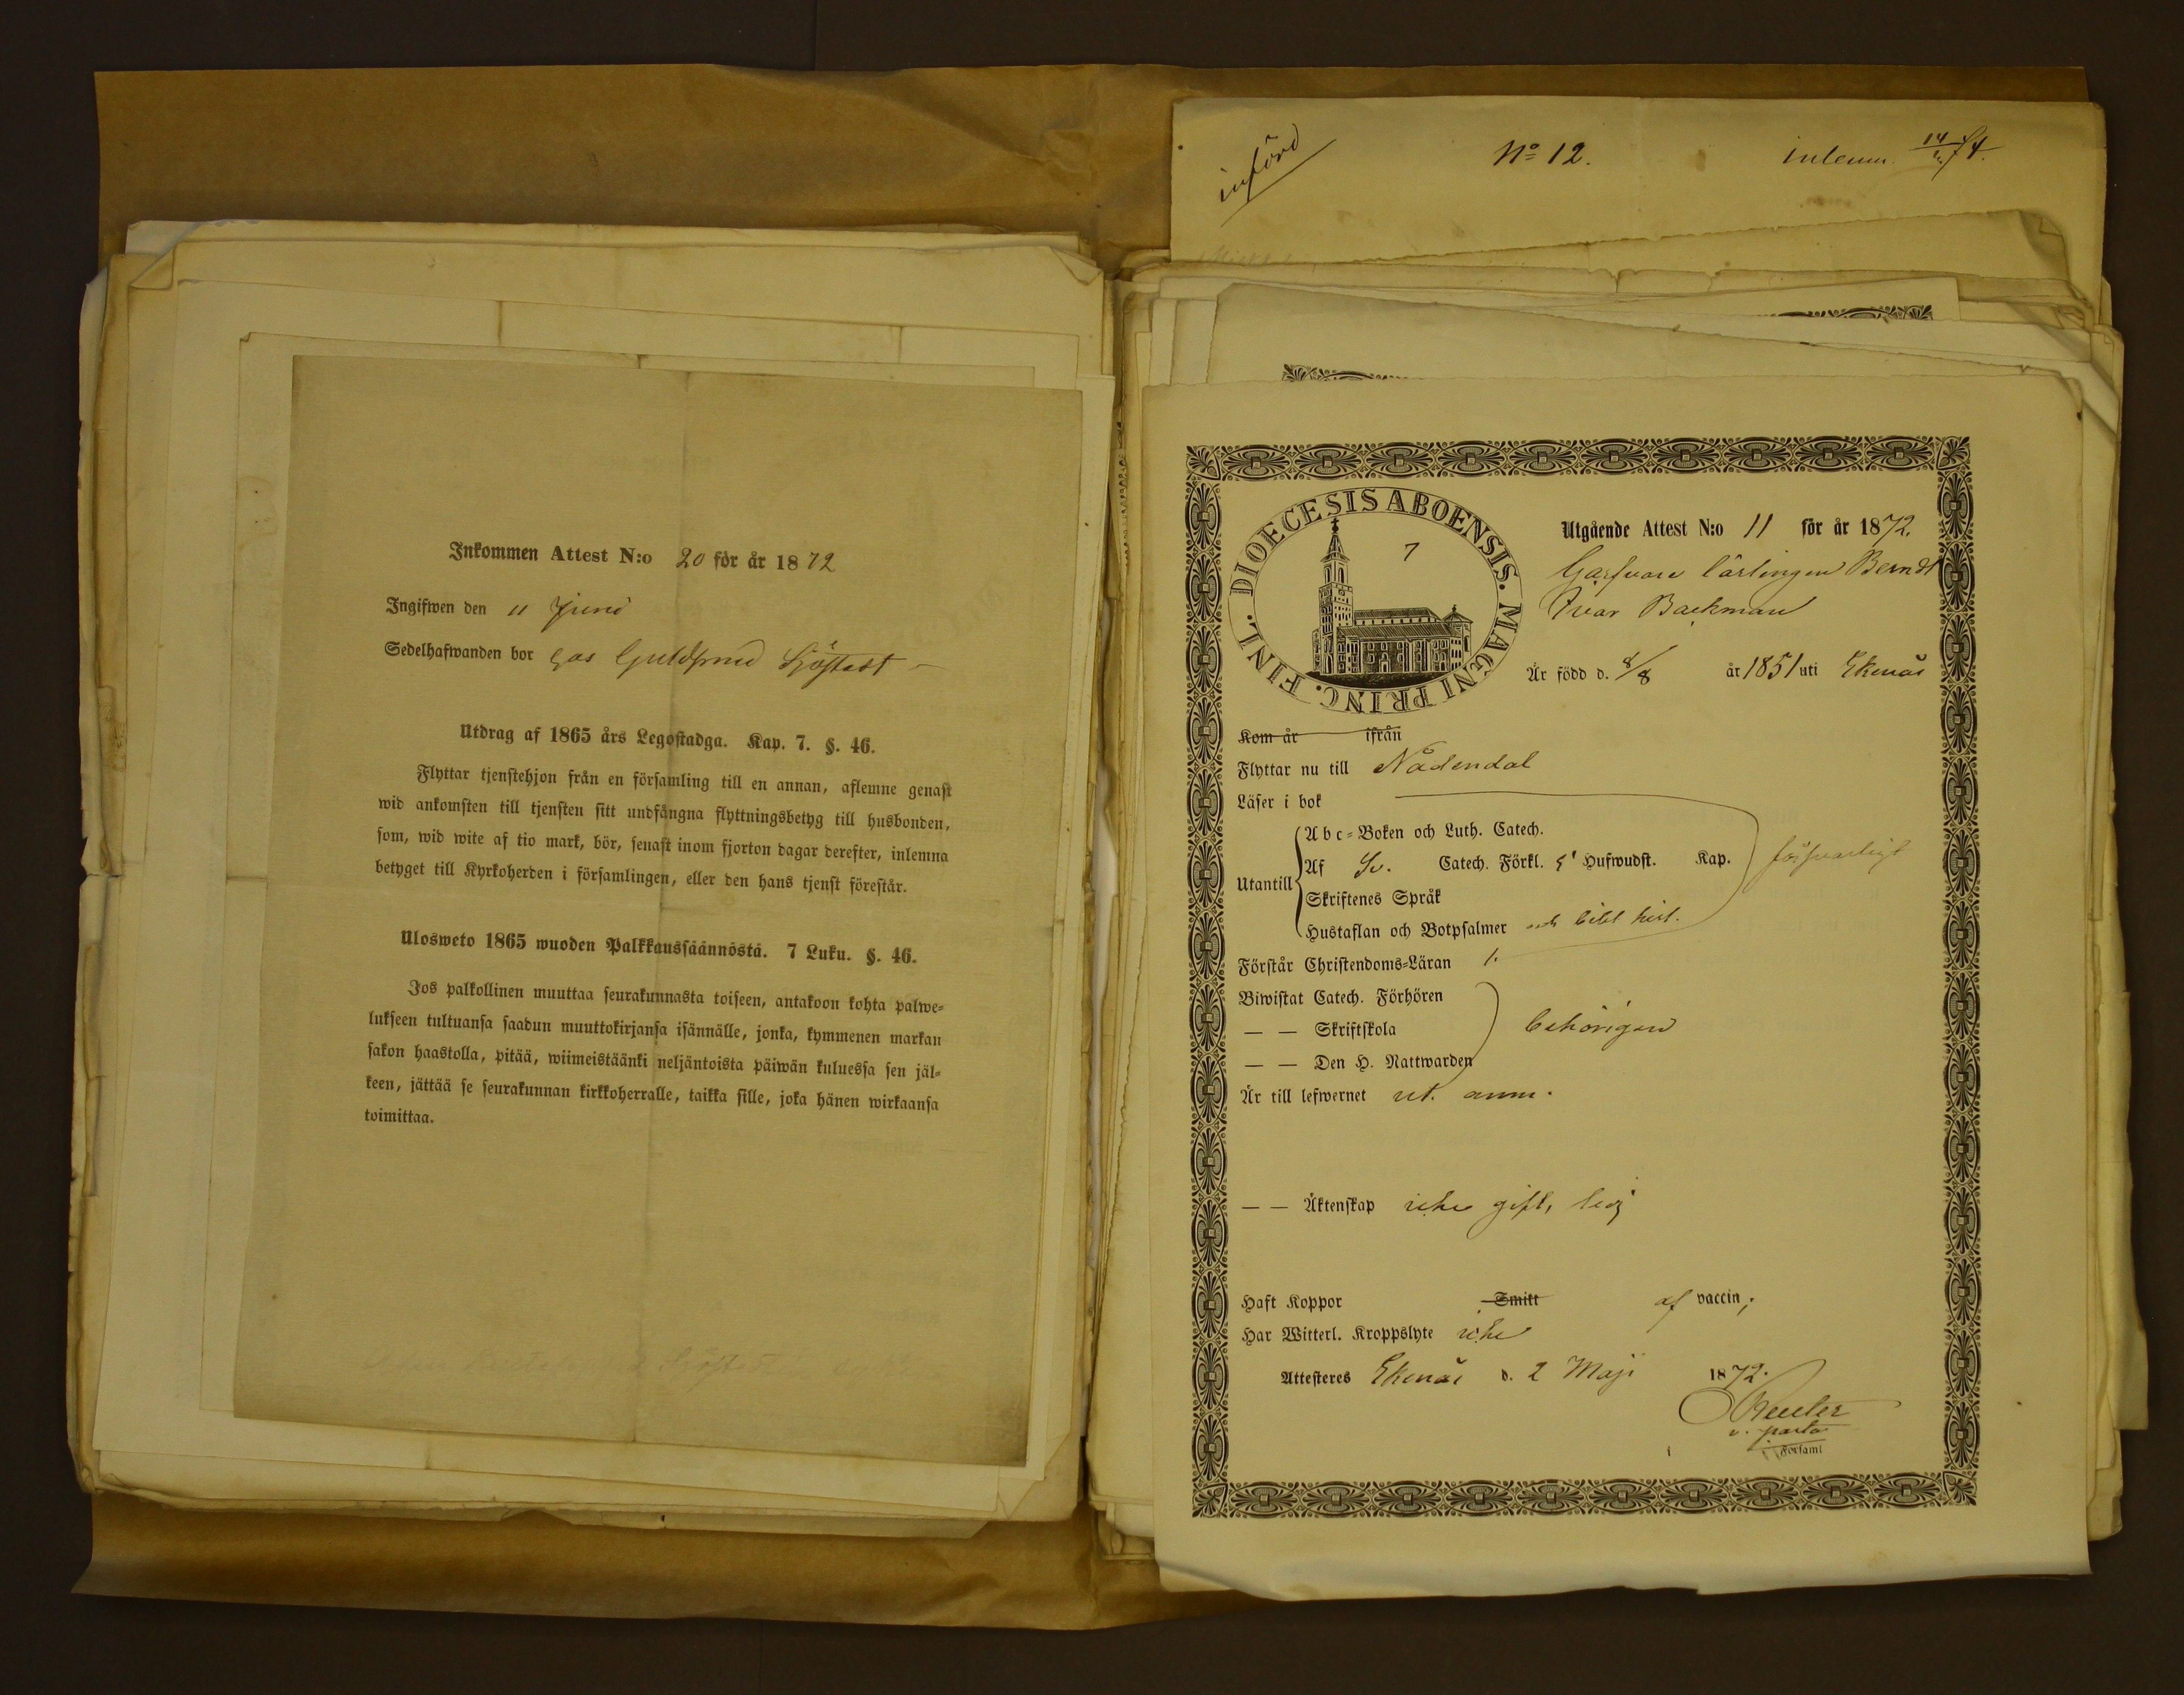 Inkommen Attest N:o 20 för år 1872
Ingifwen den 11 Juni
Sedelhafwanden bor hos Guldsmed Sjöstedt
Utdrag af 1865 års Legostadga. Kap. 7. §. 46.
Flyttar tjenstehjon från en församling till en annan, aflemne genast
wid ankomsten till tjensten sitt undfångna flyttningsbetyg till husbonden,
som, wid wite af tio mark, bör, senast inom fjorton dagar derefter, inlemna
betyget till Kyrkoherden i församlingen, eller den hans tjenst förestår.
Ulosweto 1865 wuoden Palkkaussäännöstä. 7 Luku. §. 46.
Jos palkollinen muuttaa seurakunnasta toiseen, antakoon kohta palwe-
lukseen tultuansa saadun muuttokirjansa isännälle, jonka, kymmenen markan
sakon haastolla, pitää, wiimeistäänki neljäntoista päiwän kuluessa sen jäl-
keen, jättää se seurakunnan kirkkoherralle, taikka sille, joka hänen wirkaansa
toimittaa.
införd
No 12.
inlemn.
DIOECESIS ABOENSIS. MAGNI PRINC. FINL.
7
Utgående Attest N:o 11 för år 1872.
Garfvare lärlingen Berndt
Ivar Backman
Är född d. 8/8 år 1851 uti Ekenäs
Kom år ifrån
Flyttar nu till Nådendal
Läser i bok
Utantill
Abc-Boken och Luth. Catech.
Af Sv. Catech. Förkl. 5 Hufwudst. Kap.
försvarligt
Skriftenes Språk
Hustaflan och Botpsalmer och bibl. hist.
Förstår Christendoms-Läran
Biwistat Catech. Förhören
— — Skriftskola
behörigen
— — Den H. Nattwarden
Är till lefwernet ut. anm.
— — Äktenskap icke gift, ledig
Haft Koppor Smitt af vaccin;
Har Witterl. Kroppslyte icke
Attesteres Ekenäs d. 2 Maji 1872.
Reuter
v. pastor
i Församl